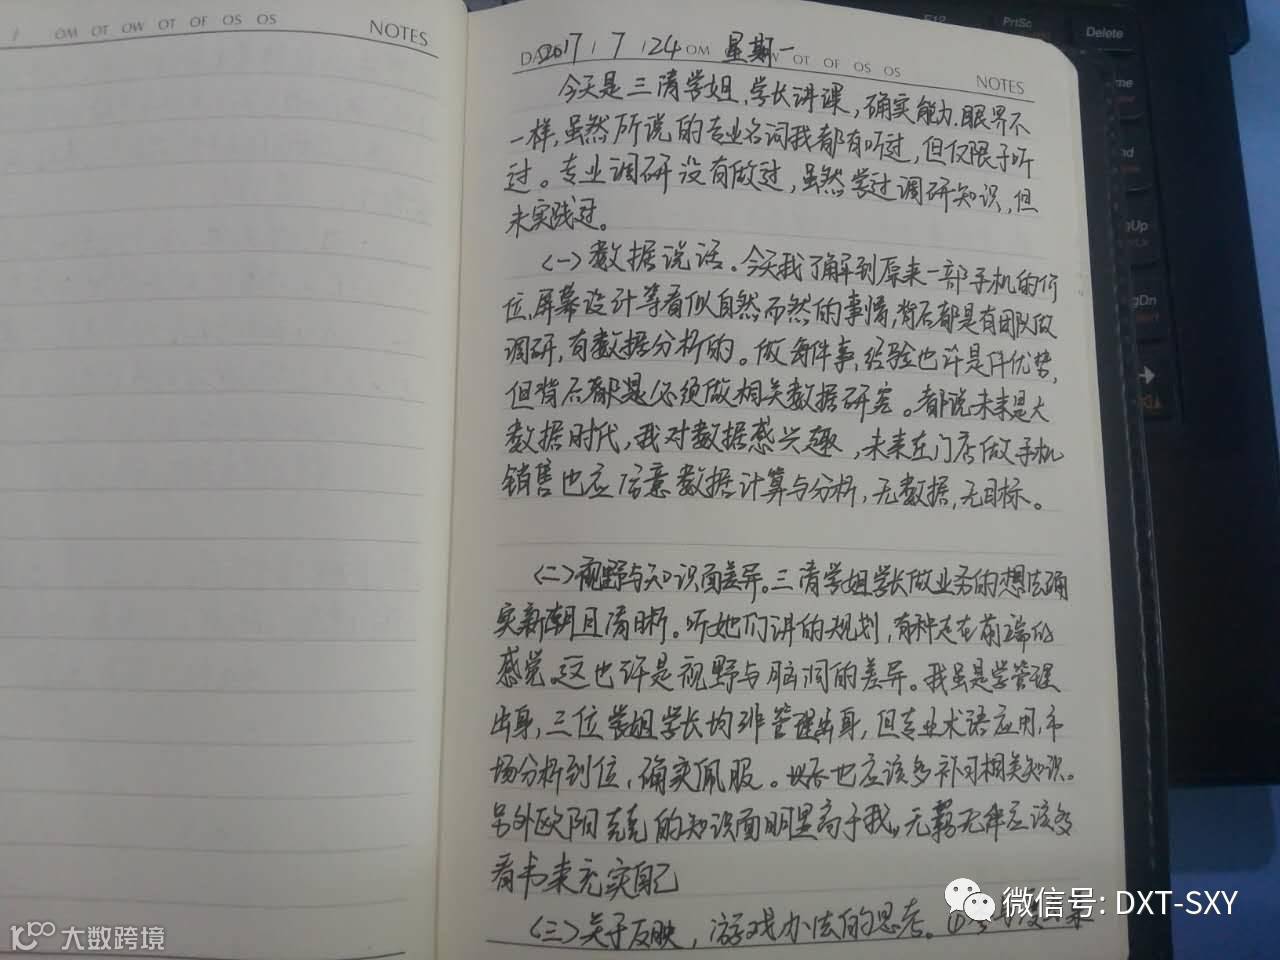 OM OT OW OT OF OS OS NOTES
DA 2017 / 7 / 24 OM 星期一 OT OF OS OS NOTES
今天是三清学姐、学长讲课，确实能力、眼界不
一样，虽然所说的专业名词我都有听过，但仅限于听
过。专业调研没有做过，虽然学过调研知识，但
未实践过。
<一>数据说话。今天我了解到原来一部手机的价
位、屏幕设计等看似自然而然的事情，背后都是有团队做
调研，有数据分析的。做每件事，经验也许是件优势，
但背后都是必须做相关数据研究。都说未来是大
数据时代，我对数据感兴趣，未来在门店做手机
销售也应留意数据计算与分析，无数据，无目标。
<二>视野与知识面差异。三清学姐学长做业务的想法确
实新潮且清晰。听她们讲的规划，有种走在前端的
感觉。这也许是视野与脑洞的差异。我虽是学管理
出身，三位学姐学长均非管理出身，但专业术语应用，市
场分析到位，确实佩服。以后也应该多补习相关知识。
另外欧阳克克的知识面明显高于我，应该多
看书来充实自己
<三>关于反映，游戏办法的思考。①
微信号: DXT-SXY
大数跨境
F12
PrtSc
Delete
gUp
gDn